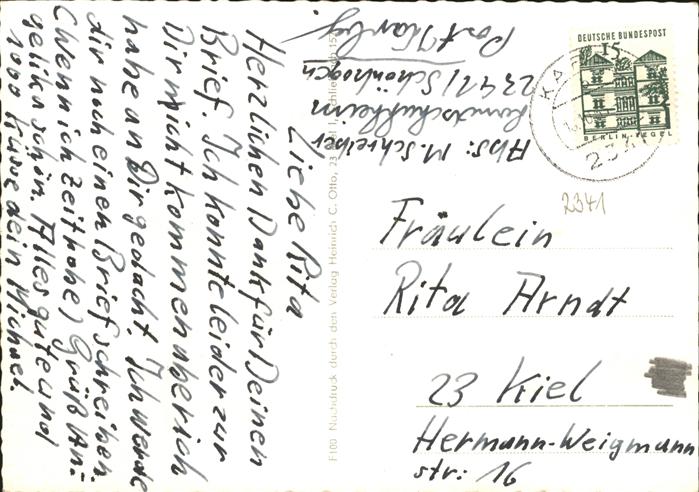 Liebe Rita
Herzlichen Dank für Deinen
Brief. Ich konnte leider zur
Dir nicht kommen aber ich
habe an Dir gedacht. Ich werde
dir noch einen Brief schreiben.
(Wenn ich Zeit habe) Grüß An-
gelika schön. Alles gute und
1000 Küsse dein Michael.
Abs: M. Schreiber
Landschulheim
2341 / Schönhagen
Post Karby
DEUTSCHE BUNDESPOST
15
BERLIN-TEGEL
2341
2341
Fräulein
Rita Arndt
23 Kiel
Hermann-Weigmann
str: 16
F100 Nachdruck durch den Verlag Heinrich C. Otto, 23